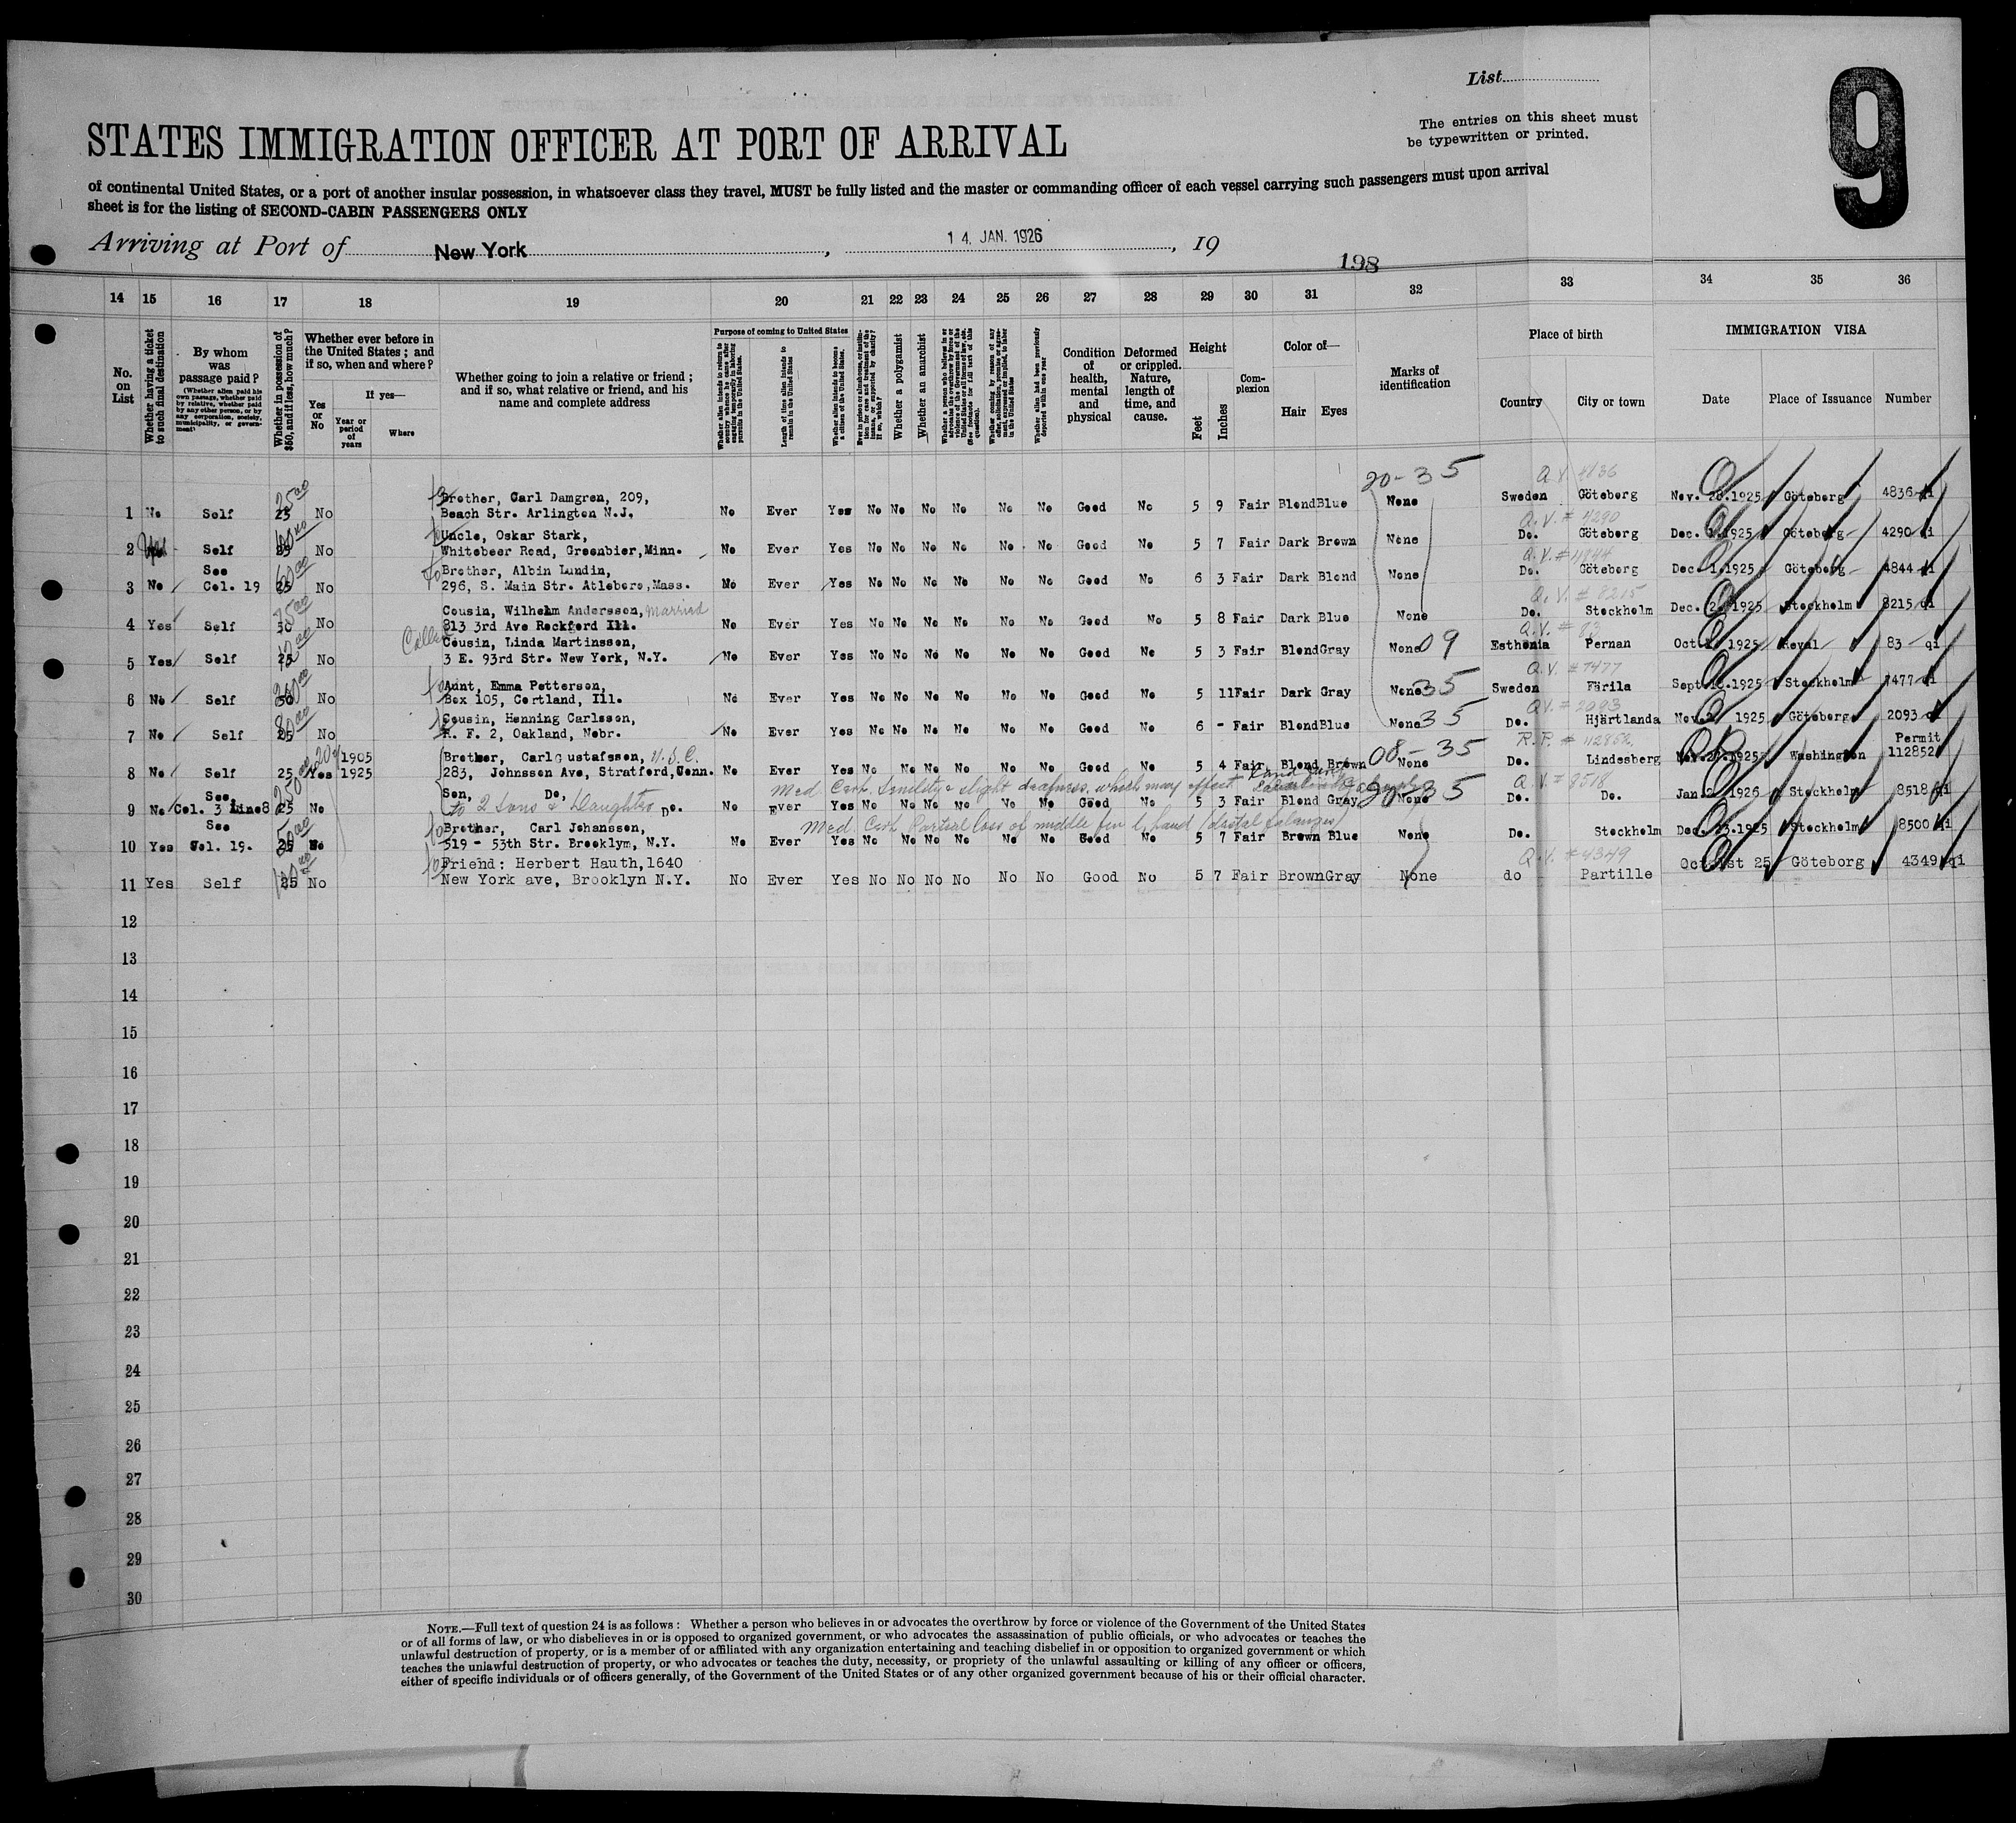 List
9
The entries on this sheet must
be typewritten or printed.
STATES IMMIGRATION OFFICER AT PORT OF ARRIVAL
of continental United States, or a port of another insular possession, in whatsoever class they travel, MUST be fully listed and the master or commanding officer of each vessel carrying such passengers must upon arrival
sheet is for the listing of SECOND-CABIN PASSENGERS ONLY
Arriving at Port of New York, 14. JAN. 1926, 19
198
14 15 16 17 18 19 20 21 22 23 24 25 26 27 28 29 30 31 32 33 34 35 36
No. on List
Whether having a ticket to such final destination
By whom was passage paid?
(Whether alien paid his own passage, whether paid by relative, whether paid by any other person, or by any corporation, society, municipality, or government)
Whether in possession of $50, and if less, how much?
Whether ever before in the United States; and if so, when and where?
Yes or No
If yes—
Year or period of years
Where
Whether going to join a relative or friend; and if so, what relative or friend, and his name and complete address
Purpose of coming to United States
Length of time alien intends to remain in the United States
Whether alien intends to become a citizen of the United States
Whether a polygamist
Whether an anarchist
Condition of health, mental and physical
Deformed or crippled. Nature, length of time, and cause.
Height
Feet
Inches
Complexion
Color of—
Hair
Eyes
Marks of identification
Place of birth
Country
City or town
IMMIGRATION VISA
Date
Place of Issuance
Number
20-35
Q.V. 4836
Brother, Carl Damgren, 209,
1 No Self 25 No Beach Str. Arlington N.J. No Ever Yes No No No No No No Good No 5 9 Fair Blond Blue None Sweden Göteborg Nov. 28.1925 Göteborg 4836 qi
Q.V. # 4290
Uncle, Oskar Stark,
2 Self 25 No Whitebeer Road, Greenbier, Minn. No Ever Yes No No No No No No Good No 5 7 Fair Dark Brown None Do. Göteborg Dec. 1.1925 Göteborg 4290 qi
Q.V. # 4844
See Brother, Albin Lundin,
3 No Col. 19 25 No 296, S. Main Str. Atleboro, Mass. No Ever Yes No No No No No No Good No 6 3 Fair Dark Blond None Do. Göteborg Dec. 1.1925 Göteborg 4844 qi
Q.V. # 8215
Cousin, Wilhelm Andersson, married
4 Yes Self 50 No 813 3rd Ave Rockford Ill. No Ever Yes No No No No No No Good No 5 8 Fair Dark Blue None Do. Stockholm Dec. 1925 Stockholm 8215 qi
Q.V. # 83
Cousin, Linda Martinsson,
5 Yes Self 25 No 3 E. 93rd Str. New York, N.Y. No Ever Yes No No No No No No Good No 5 3 Fair Blond Gray None 09 Esthonia Pernan Oct. 1925 Reval 83 qi
Q.V. # 7477
Aunt, Emma Petterson,
6 No Self 50 No Box 105, Cortland, Ill. No Ever Yes No No No No No No Good No 5 11 Fair Dark Gray None 35 Sweden Färila Sept. 1925 Stockholm 7477 qi
QV # 2093
Cousin, Henning Carlsson,
7 No Self 25 No R. F. 2, Oakland, Nebr. No Ever Yes No No No No No No Good No 6 - Fair Blond Blue None 35 Do. Hjärtlanda Nov. 1925 Göteborg 2093 qi
1905 08-35 R.P. # 112852 Permit
Brother, Carl Gustafsson, U.S.C.
8 No Self 25 Yes 1925 283, Johnsson Ave, Stratford, Conn. No Ever Yes No No No No No No Good No 5 4 Fair Blond Brown None Do. Lindesberg Nov. 27.1925 Washington 112852
Med Cert. Senility & slight deafness, which may affect
See Son, Do, 20-35 Q.V. # 8518
9 No Col. 3 Line8 25 No to 2 Sons & Daughter Do. No Ever Yes No No No No No No Good No 5 3 Fair Blond Gray None Do. Do. Jan. 2 1926 Stockholm 8518 qi
Med. Cert. Partial loss of middle fin l. hand (distal falanges)
See Brother, Carl Johansson,
10 Yes Col. 19. 25 No 519 - 53th Str. Brooklym, N.Y. No Ever Yes No No No No No No Good No 5 7 Fair Brown Blue None Do. Stockholm Dec. 23.1925 Stockholm 8500 qi
Q.V. # 4349
Friend: Herbert Hauth, 1640
11 Yes Self 25 No New York ave, Brooklyn N.Y. No Ever Yes No No No No No No Good No 5 7 Fair Brown Gray None do Partille Oct 1st 25 Göteborg 4349 qi
12
13
14
15
16
17
18
19
20
21
22
23
24
25
26
27
28
29
30
NOTE.—Full text of question 24 is as follows: Whether a person who believes in or advocates the overthrow by force or violence of the Government of the United States
or of all forms of law, or who disbelieves in or is opposed to organized government, or who advocates the assassination of public officials, or who advocates or teaches the
unlawful destruction of property, or is a member of or affiliated with any organization entertaining and teaching disbelief in or opposition to organized government or which
teaches the unlawful destruction of property, or who advocates or teaches the duty, necessity, or propriety of the unlawful assaulting or killing of any officer or officers,
either of specific individuals or of officers generally, of the Government of the United States or of any other organized government because of his or their official character.